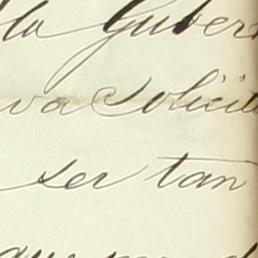 la Guber
va Solicit
ser tan
que